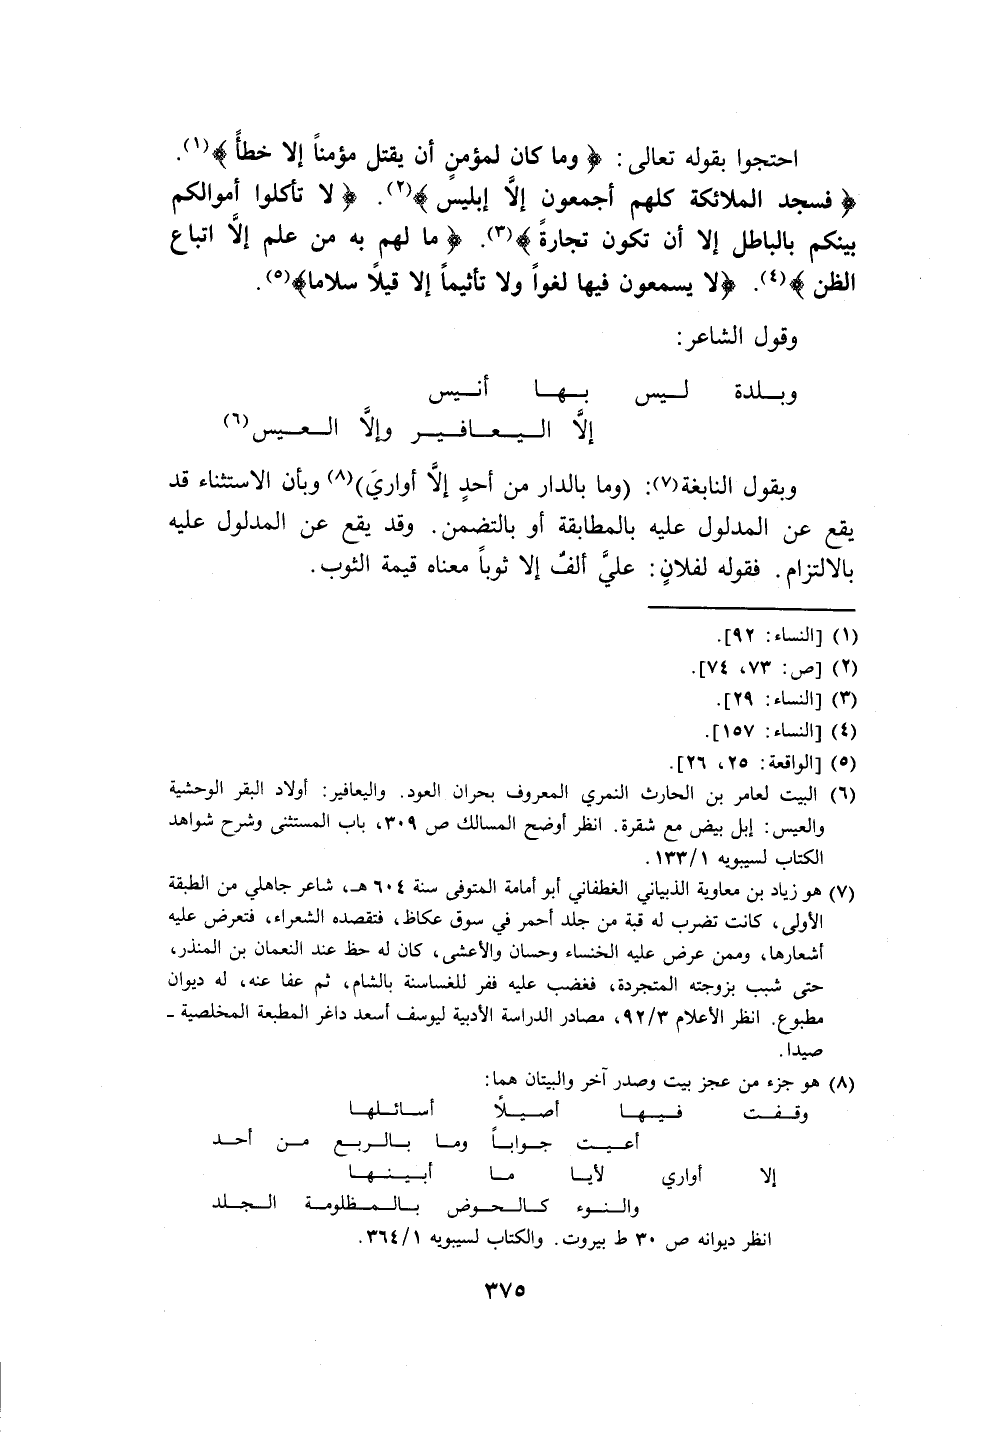 احتجوا بقوله تعالى: ﴿ وما كان لمؤمنٍ أن يقتل مؤمناً إلا خطأً ﴾(١).
﴿ فسجد الملائكة كلهم أجمعون إلَّا إبليس ﴾(٢). ﴿ لا تأكلوا أموالكم
بينكم بالباطل إلا أن تكون تجارةً ﴾(٣). ﴿ ما لهم به من علم إلَّا اتباع
الظن ﴾(٤). ﴿لا يسمعون فيها لغواً ولا تأثيماً إلا قيلًا سلاما﴾(٥).
وقول الشاعر:
وبـلدة لـيس بـهـا أنـيس
إلَّا الـيـعـافـيـر وإلَّا الـعـيس(٦)
وبقول النابغة(٧): (وما بالدار من أحدٍ إلَّا أواريَ)(٨) وبأن الاستثناء قد
يقع عن المدلول عليه بالمطابقة أو بالتضمن. وقد يقع عن المدلول عليه
بالالتزام. فقوله لفلانٍ: عليَّ ألفٌ إلا ثوباً معناه قيمة الثوب.
(١) [النساء: ٩٢].
(٢) [ص: ٧٣، ٧٤].
(٣) [النساء: ٢٩].
(٤) [النساء: ١٥٧].
(٥) [الواقعة: ٢٥، ٢٦].
(٦) البيت لعامر بن الحارث النمري المعروف بحران العود. واليعافير: أولاد البقر الوحشية
والعيس: إبل بيض مع شقرة. انظر أوضح المسالك ص ٣٠٩، باب المستثنى وشرح شواهد
الكتاب لسيبويه ١/١٣٣.
(٧) هو زياد بن معاوية الذبياني الغطفاني أبو أمامة المتوفى سنة ٦٠٤ هـ، شاعر جاهلي من الطبقة
الأولى، كانت تضرب له قبة من جلد أحمر في سوق عكاظ، فتقصده الشعراء، فتعرض عليه
أشعارها، وممن عرض عليه الخنساء وحسان والأعشى، كان له حظ عند النعمان بن المنذر،
حتى شبب بزوجته المتجردة، فغضب عليه ففر للغساسنة بالشام، ثم عفا عنه، له ديوان
مطبوع. انظر الأعلام ٩٢/٣، مصادر الدراسة الأدبية ليوسف أسعد داغر المطبعة المخلصية -
صيدا.
(٨) هو جزء من عجز بيت وصدر آخر والبيتان هما:
وقـفـت فـيـهـا أصـيـلًا أسـائـلـها
أعـيـت جـوابـاً ومـا بـالـربـع مـن أحـد
إلا أواري لأيـا مـا أبـيـنـهـا
والـنـوء كـالـحـوض بـالـمـظلومـة الـجـلد
انظر ديوانه ص ٣٠ ط بيروت. والكتاب لسيبويه ٣٦٤/١.
٣٧٥